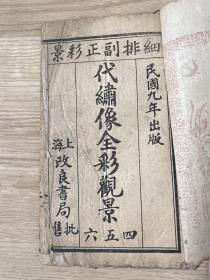 細排副正彩景
民國九年出版
代繡像全彩觀景
四五六
上海改良書局批售